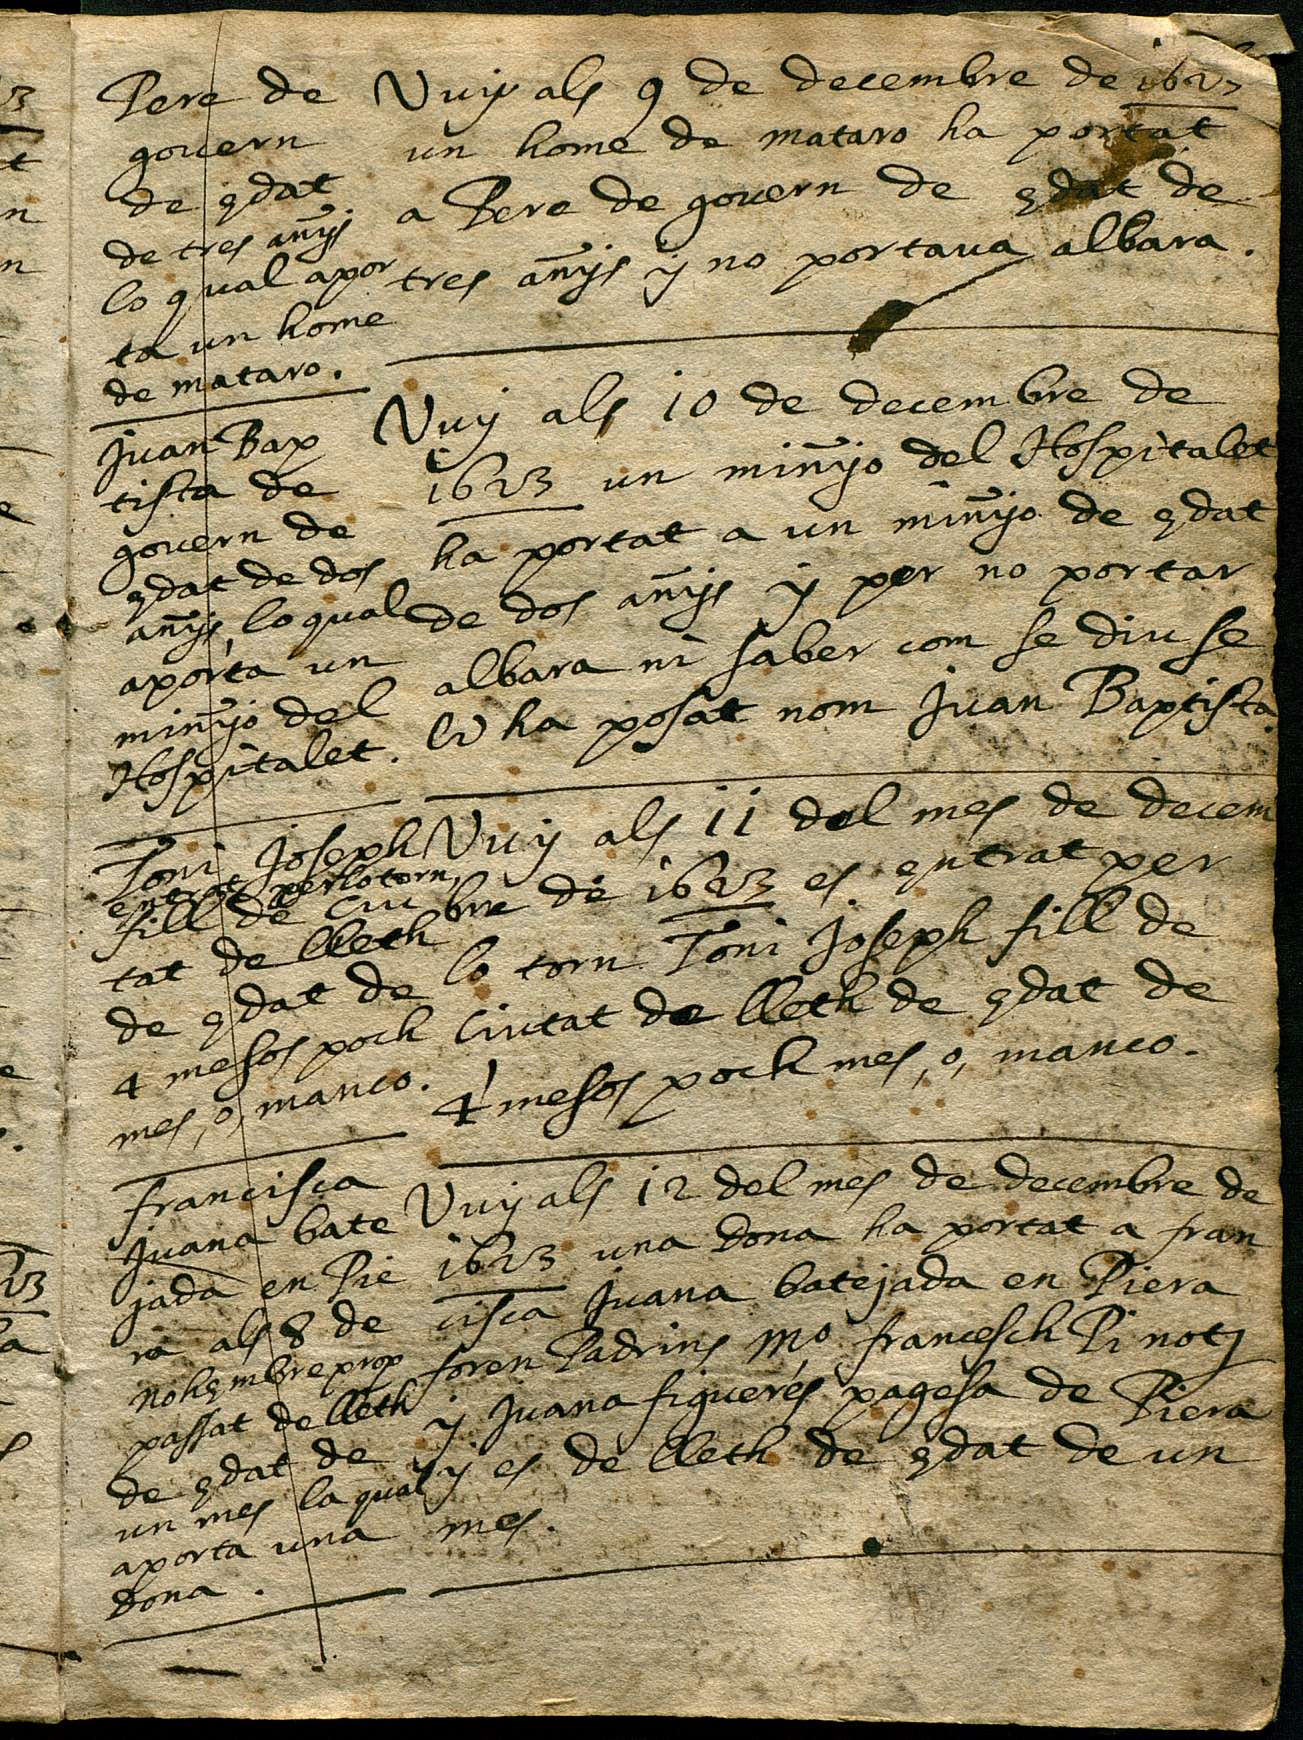 Pere de
govern
de edat
de tres anÿs
lo qual apor
ta un home
de mataro.
Vuy als 9 de decembre de 1623
un home de mataro ha portat
a Pere de govern de edat de
tres anÿs y no portaua albara.
Juan Bap
tista de
govern de
edat de dos
anÿs, lo qual
aporta un
minÿo del
Hospitalet.
Vuy als 10 de decembre de
1623 un minÿo del Hospitalet
ha portat a un minÿo de edat
de dos anÿs y per no portar
albara ni saber com se diu se
li ha posat nom Juan Baptista.
Toni Joseph
entrat per lo torn,
fill de Ciu
tat de lleth
de edat de
4 mesos poch
mes, o, manco.
Vuy als 11 del mes de decem
bre de 1623 es entrat per
lo torn Toni Joseph fill de
Ciutat de lleth de edat de
4 mesos poch mes, o, manco.
Francisca
Juana bate
jada en Pie
ra als 8 de
nohembre prop
passat de lleth
de edat de
un mes la qual
aporta una
dona.
Vuy als 12 del mes de decembre de
1623 una dona ha portat a fran
cisca Juana batejada en Piera
foren Padrins mº francesch Pi notj
y Juana figueres pagesa de Piera
y es de lleth de edat de un
mes.